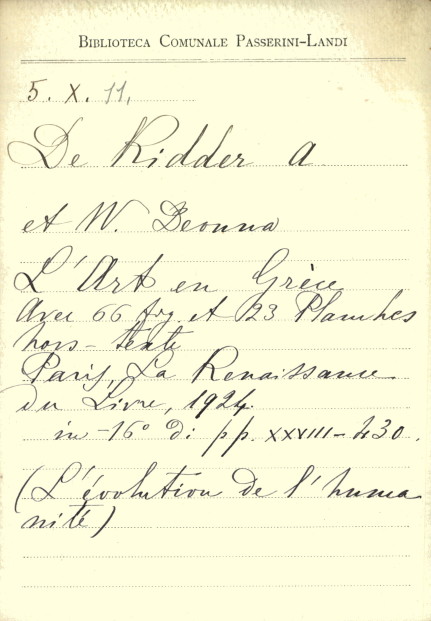 BIBLIOTECA COMUNALE PASSERINI-LANDI
5. X. 11,
De Ridder A
et W. Deonna
L'Art en Grèce
Avec 66 fig et 23 Planches
hors-texte
Paris, La Renaissance
du Livre, 1924.
in-16° di pp. XXVIII-430.
(L'évolution de l'huma
nité)